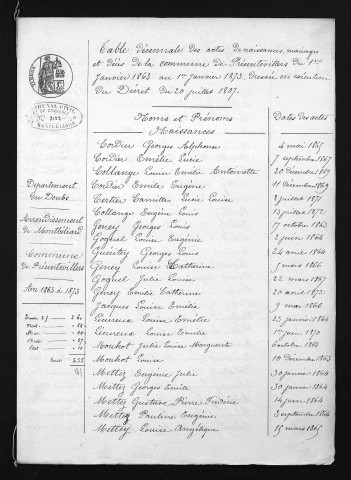 Table décennale des actes de naissances, mariages
et décès de la commune de Présentevillers du 1er
Janvier 1863 au 1er Janvier 1873, dressée en exécution
du Décret du 20 juillet 1807.
Noms et Prénoms
Dates des actes
Naissances
Cordier Georges Alphonse 4 mai 1865
Cordier Emélie Lucie 7 septembre 1867
Collange Louise Emélie Antoinette 20 décembre 1867
Cordier Emile Eugène 11 décembre 1869
Certier Camille Louise 8 juillet 1871
Collange Eugène Louis 13 juillet 1872
Geney Georges Louis 17 octobre 1863
Goguel Louise Eugénie 2 juin 1864
Guéritey Georges Louis 24 août 1864
Geney Louise Catherine 5 mars 1866
Goguel Julie Louise 22 mars 1867
Geney Emélie Catherine 20 août 1872
Jacques Louise Emélie 9 mai 1868
Lécureux Louise Emélie 23 janvier 1864
Lécureux Louise 1er juin 1870
Mouhot Julie Louise Marguerite 6 octobre 1863
Mouhot Louise 10 Décembre 1863
Mettez Eugénie Julie 30 janvier 1864
Mettez Georges Emile 30 janvier 1864
Mettez Gustave Pierre Frédéric 14 juin 1864
Mettez Pauline Eugénie 3 septembre 1864
Mettey Louise Angélique 15 mars 1865
TRIBUNAL CIVIL
MONTBELIARD
Département
du Doubs
Arrondissement
de Montbéliard
Commune
de Présentevillers
An 1863 à 1873